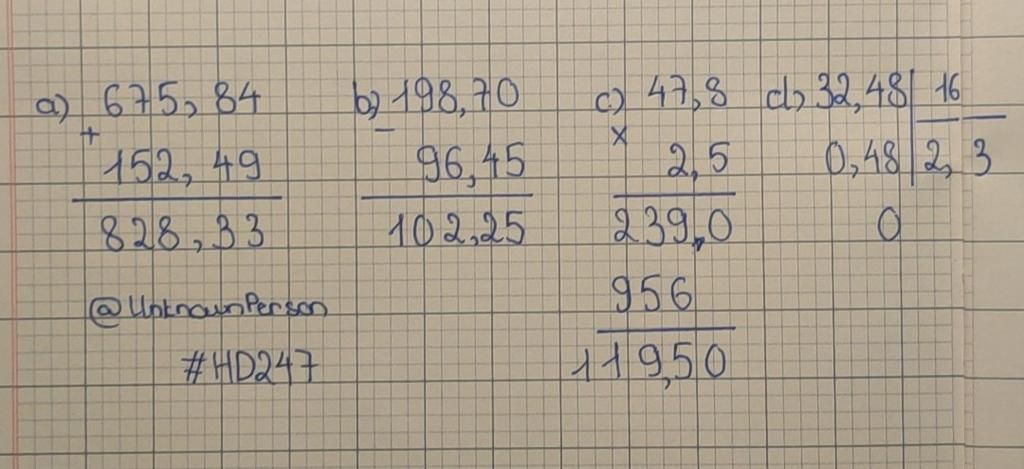 a) 675,84 b) 198,70 c) 47,8 d) 32,48 16
+ - x
152,49 96,45 2,5 0,48 2,3
828,33 102,25 239,0 0
@UnknownPerson 956
#HD247 119,50